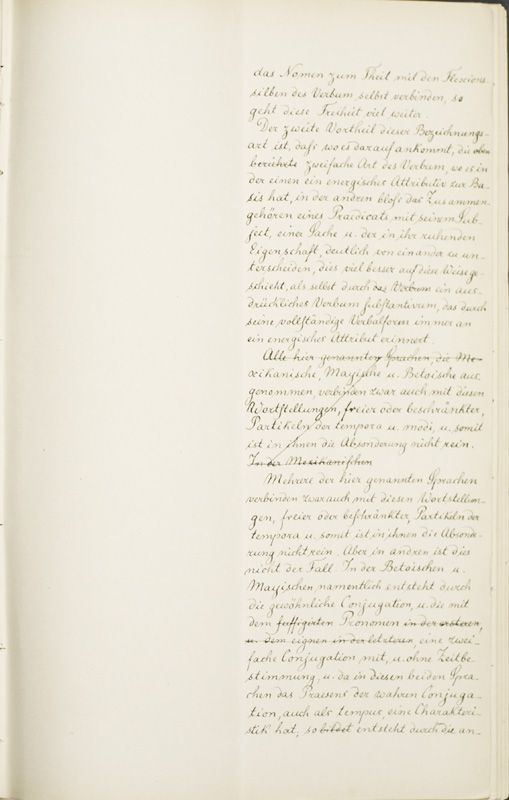 das Nomen zum Theil mit den Flexions-
silben des Verbum selbst verbinden, so
geht diese Freiheit viel weiter.
Der zweite Vortheil dieser Bezeichnungs-
art ist, daſs wo es darauf ankommt, die oben
berührte zweifache Art des Verbum, wo es in
der einen ein energisches Attributiv zur Ba-
sis hat, in der andren bloſs das Zusammen-
gehören eines Praedicats mit seinem Sub-
ject, einer Sache u. der in ihr ruhenden
Eigenschaft, deutlich von einander zu un-
terscheiden, dies viel besser auf diese Weise ge-
schieht, als selbst durch das Verbum ein aus-
drückliches Verbum ſubſtantivum, das durch
seine vollſtändige Verbalform immer an
ein energisches Attribut erinnert.
Alle hier genannten Sprachen, die Me-
xikanische, Mayische u. Betoische aus
genommen, verbinden zwar auch mit diesen
Wortſtellungen, freier oder beschränkter,
Partikeln der tempora u. modi, u. somit
ist in ihnen die Absonderung nicht rein.
In der Mexikanischen
Mehrere der hier genannten Sprachen
verbinden zwar auch mit diesen Wortstellun-
gen, freier oder beschränkter, Partikeln der
tempora u. somit ist in ihnen die Absonde-
rung nicht rein. Aber in andren ist dies
nicht der Fall. In der Betoischen u.
Mayischen namentlich entsteht durch
die gewöhnliche Conjugation, u. die mit
dem ſuffigirten Pronomen in der ersteren,
u. dem eignen in der letzteren, eine zwei-
fache Conjugation mit, u. ohne Zeitbe-
stimmung, u. da in diesen beiden Spra-
chen das Praesens der wahren Conjuga-
tion, auch als tempus, eine Charakteri-
stik hat, so bildet entsteht durch die an-